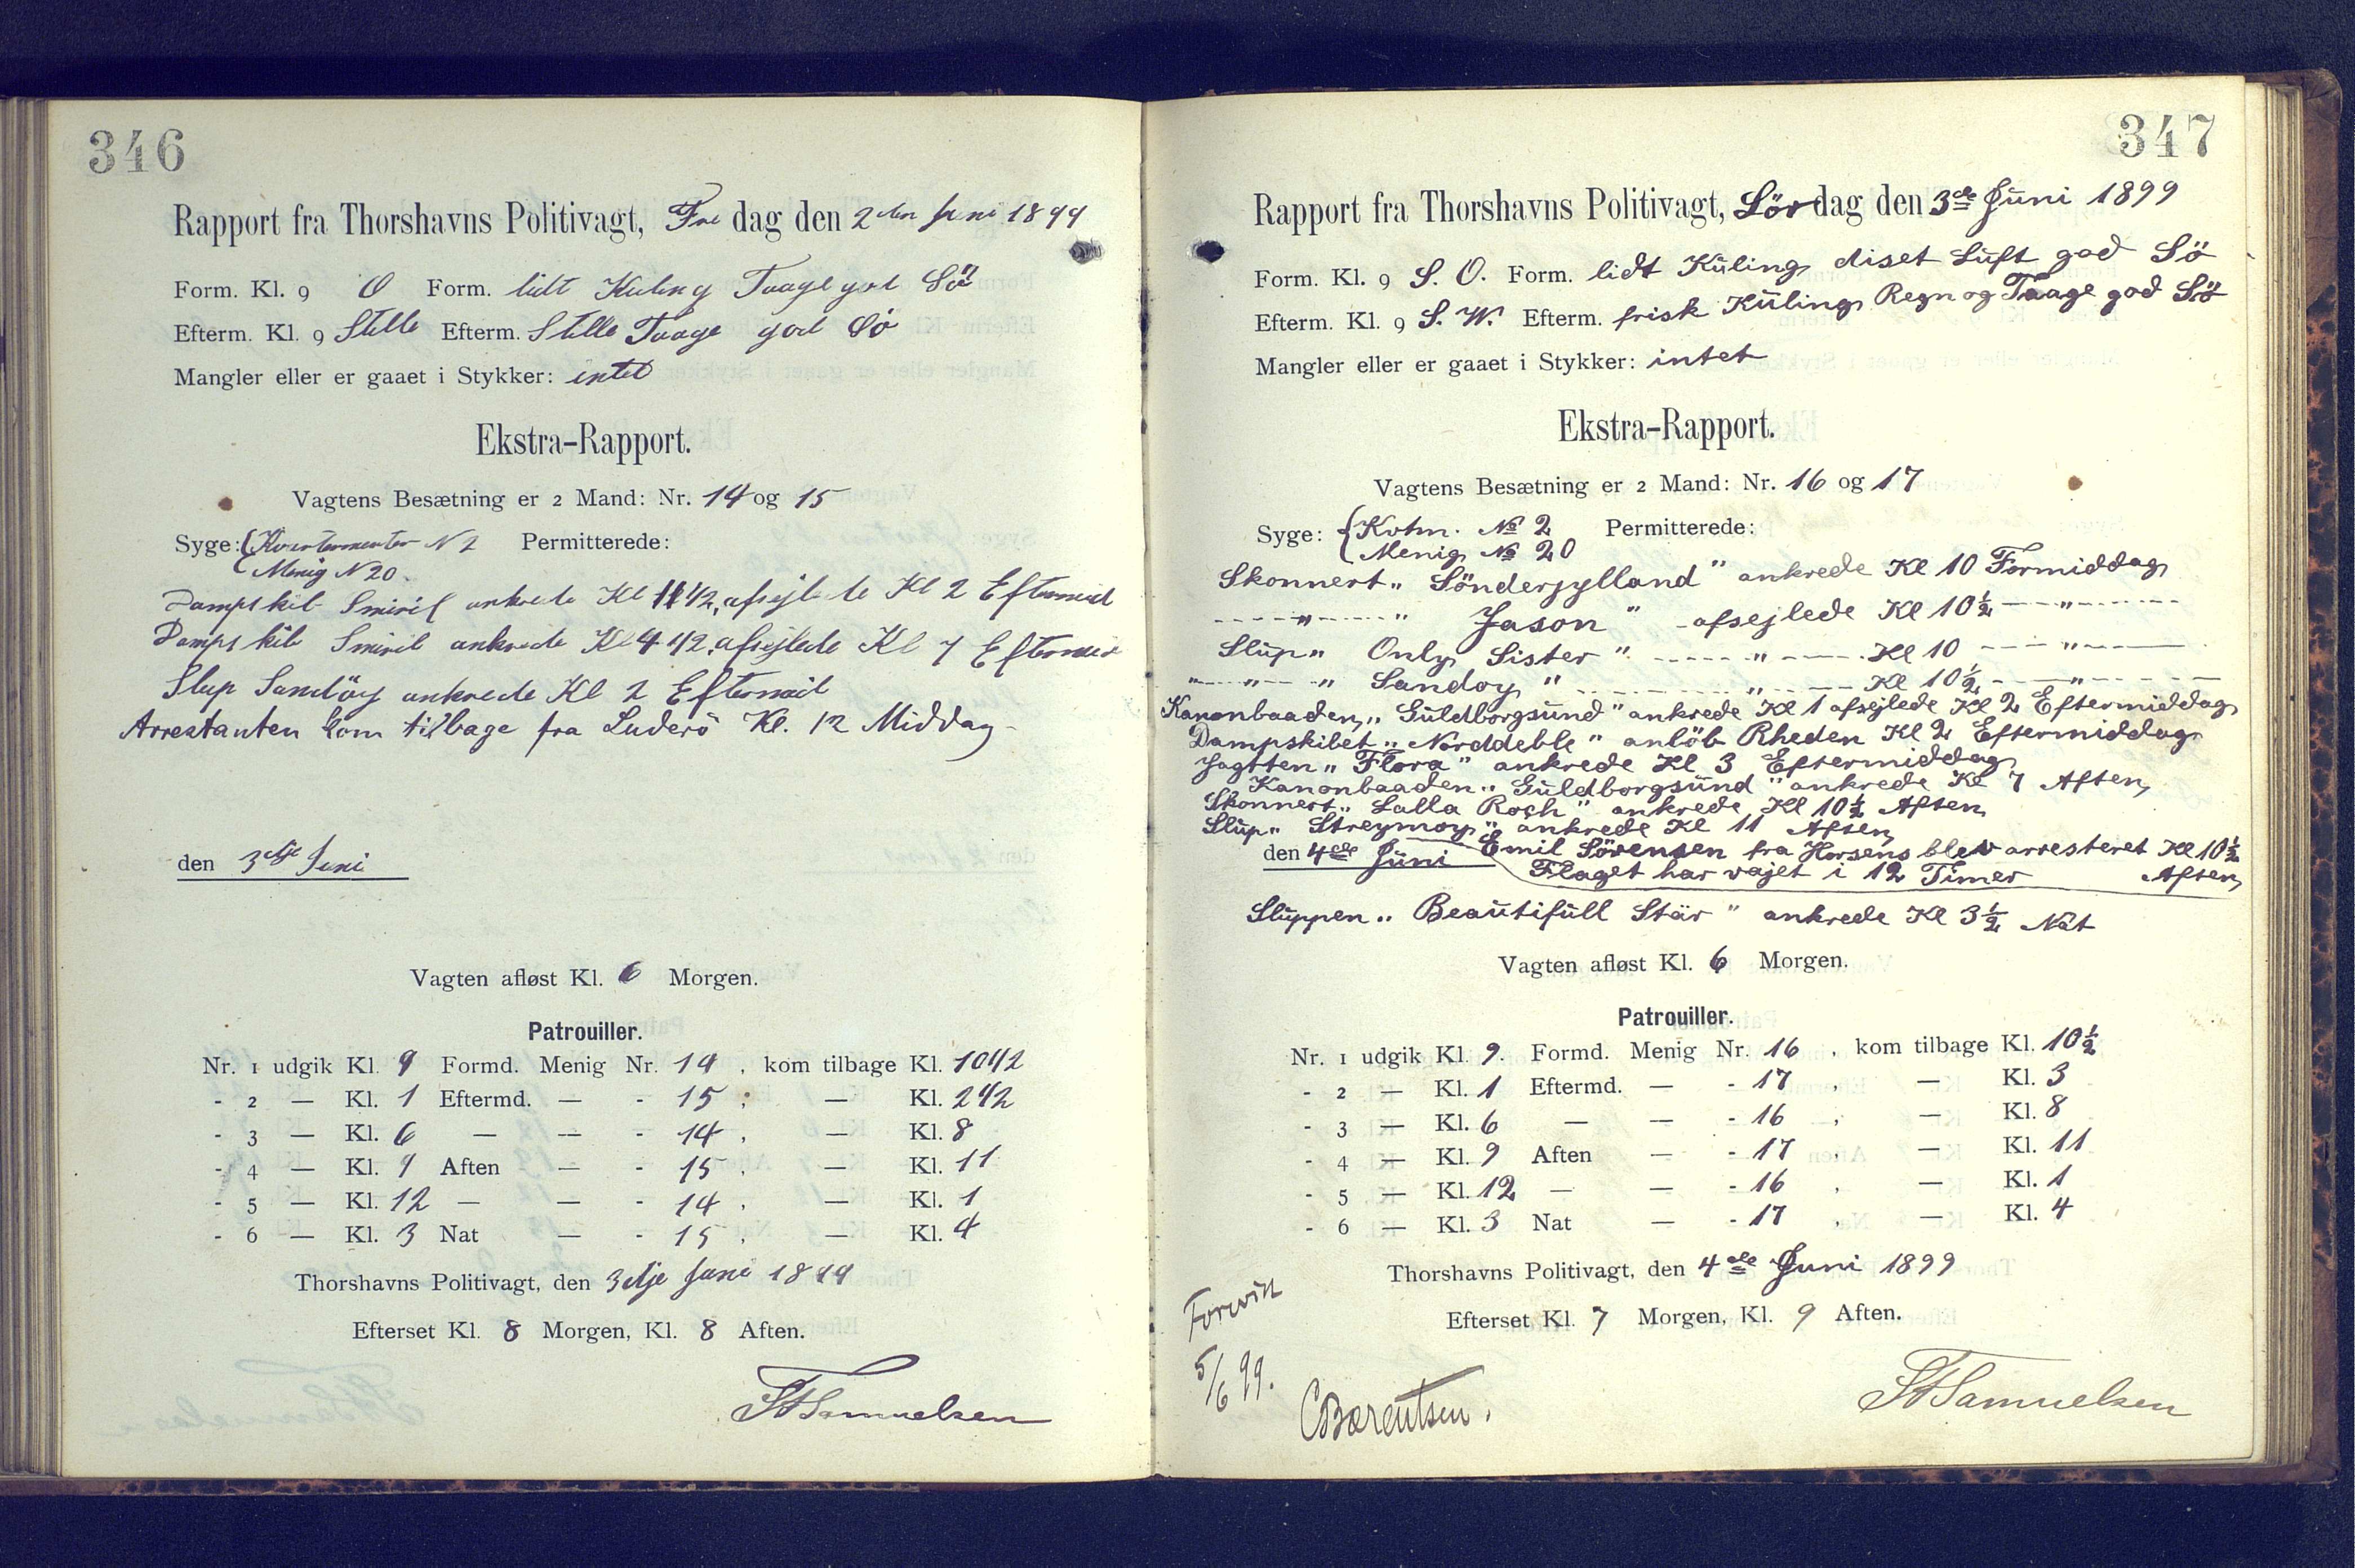 346
Rapport fra Thorshavns Politivagt, Fredag den 2den Juni 1899
Form. Kl. 9 O Form. lidt Kuling Taage god Sö
Efterm. Kl. 9 Stille Efterm. Stille Taage god Sö
Mangler eller er gaaet i Stykker: intet
Ekstra-Rapport.
Vagtens Besætning er 2 Mand: Nr. 14 og 15
Syge: { Kvartermester N 2 Permitterede:
Menig N 20.
Dampskib Smiril ankrede Kl 11 1/2, afsejlede Kl 2 Eftermid
Dampskib Smiril ankrede Kl 4 1/2, afsejlede Kl 7 Eftermid
Slup Sandöy ankrede Kl 2 Eftermid
Arrestanten kom tilbage fra Suderö Kl. 12 Middag
den 3dje Juni
Vagten afløst Kl. 6 Morgen.
Patrouiller.
Nr. 1 udgik Kl. 9 Formd. Menig Nr. 14, kom tilbage Kl. 10 1/2
- 2 — Kl. 1 Eftermd. — - 15, — Kl. 2 1/2
- 3 — Kl. 6 — — - 14, — Kl. 8
- 4 — Kl. 9 Aften — - 15, — Kl. 11
- 5 — Kl. 12 — — - 14, — Kl. 1
- 6 — Kl. 3 Nat — - 15, — Kl. 4
Thorshavns Politivagt, den 3dje Juni 1899
Efterset Kl. 8 Morgen, Kl. 8 Aften.
Samuelsen
347
Rapport fra Thorshavns Politivagt, Lördag den 3de Juni 1899
Form. Kl. 9 S. O. Form. lidt Küling diset Luft god Sö
Efterm. Kl. 9 S. W. Efterm. frisk Küling Regn og Taage god Sö
Mangler eller er gaaet i Stykker: intet
Ekstra-Rapport.
Vagtens Besætning er 2 Mand: Nr. 16 og 17
Syge: { Kvtm. № 2 Permitterede:
Menig № 20
Skonnert „ Sönderjylland " ankrede Kl 10 Formiddag
---"--- " Jason " afsejlede Kl 10 1/2 —"—
Slüp „ Only Sister " ---"--- Kl 10 —"—
"—"— " Sandoy " ---"--- Kl 10 1/2 —"—
Kanonbaaden „ Güldborgsünd " ankrede Kl 1 afsejlede Kl 2 Eftermiddag
Dampskibet „ Norddeble " anlöb Rheden Kl 2 Eftermiddag
Jagtten „ Flora " ankrede Kl 3 Eftermiddag
Kanonbaaden „ Güldborgsünd " ankrede Kl 7 Aften
Skonnert „ Lalla Rookh " ankrede Kl 10 1/2 Aften
Slüp „ Streymoy " ankrede Kl 11 Aften
Emil Sörensen fra Horsens blev arresteret Kl 10 1/2 Aften
Flaget har vajet i 12 Timer
den 4de Jüni
Slüppen „ Beaütifüll Stär " ankrede Kl 3 1/2 Nat
Vagten afløst Kl. 6 Morgen.
Patrouiller.
Nr. 1 udgik Kl. 9. Formd. Menig Nr. 16, kom tilbage Kl. 10 1/2
- 2 — Kl. 1 Eftermd. — - 17, — Kl. 3
- 3 — Kl. 6 — — - 16, — Kl. 8
- 4 — Kl. 9 Aften — - 17, — Kl. 11
- 5 — Kl. 12 — — - 16, — Kl. 1
- 6 — Kl. 3 Nat — - 17, — Kl. 4
Thorshavns Politivagt, den 4de Juni 1899
Efterset Kl. 7 Morgen, Kl. 9 Aften.
Forevist
5/6 99.
CBærentsen.
Samuelsen